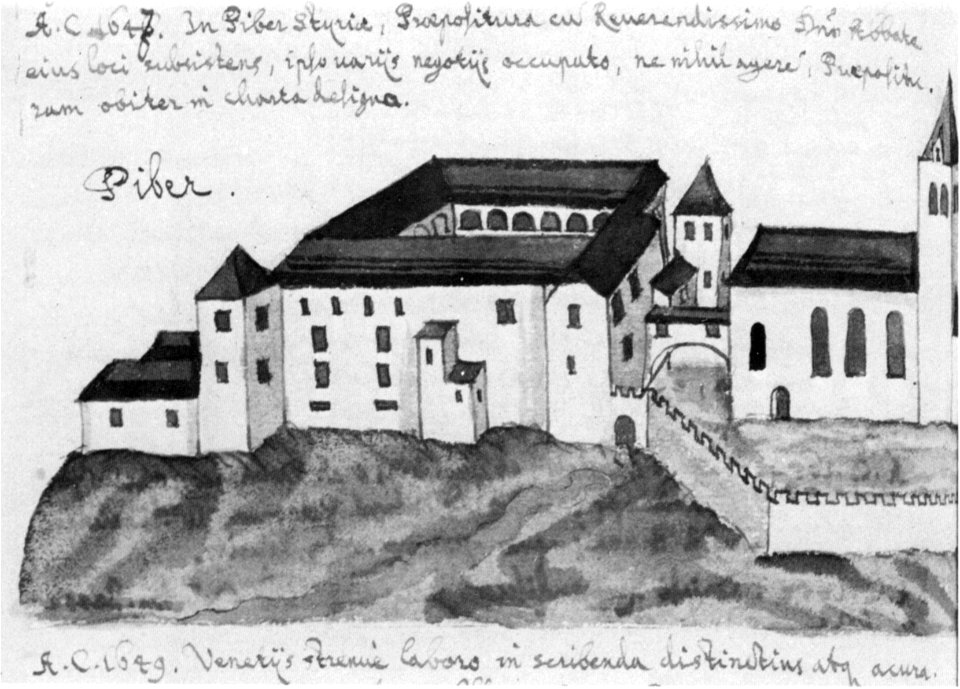 A. C. 1647. In Piber Styriæ, Præpositura cū Reuerendissimo Dnō Abbate
eius loci subsistens, ipso varijs negotijs occupato, ne nihil agerē, Præpositu.
ram obiter in charta designa.
Piber.
A. C. 1649. Venerijs strenuè laboro in scribenda distinctius atq acura.